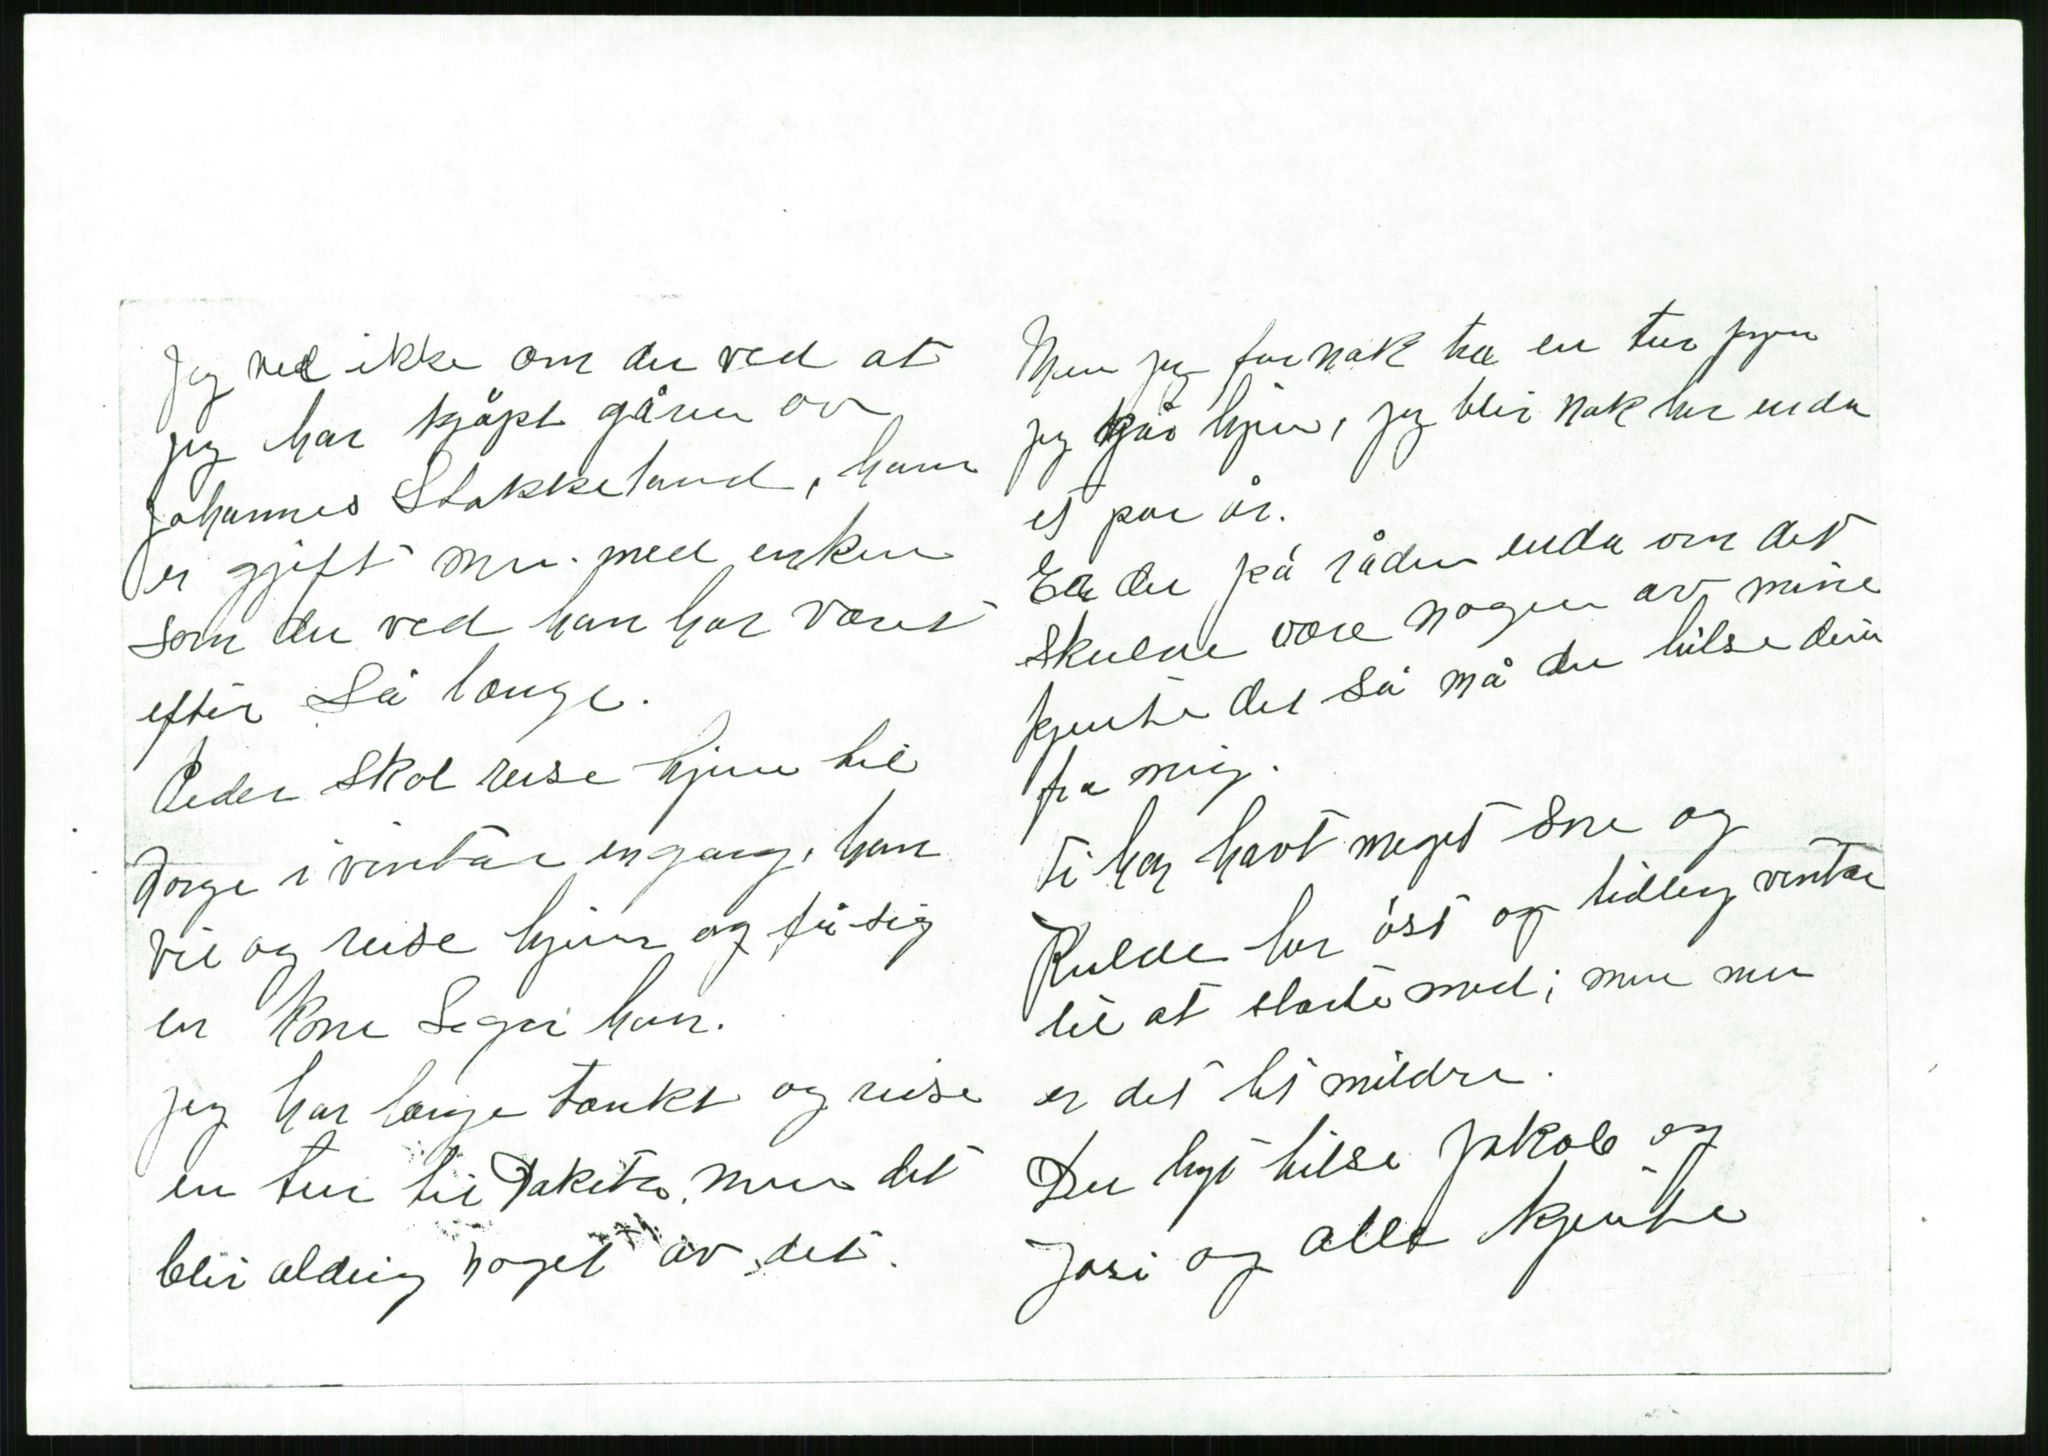 Jeg ved ikke om du ved at
jeg har kjöpt gåren av
Johannes Stakkeland, han
er gjift nu. med enken
som du ved han har været
efter Så længe.
Peder skal reise hjem til
Norge i vinter engang, han
vil og reise hjem og få sig
en kone Seger han.
jeg har længe tænkt og reise
en tur til Dakota, men det
blir aldrig noget av det.
Men jeg får nok ta en tur före
jeg går hjem, jeg blir nok her enda
et par år.
Er du på råden enda om det
skulde være nogen av mine
kjente der Så må du hilse dem
fra mig.
Vi har havt meget Sne og
Kulde her öst og tidleg vinter
til at starte med; men nu
er det lit mildre.
Du lyt hilse Jakob og
Jasi og alle kjente